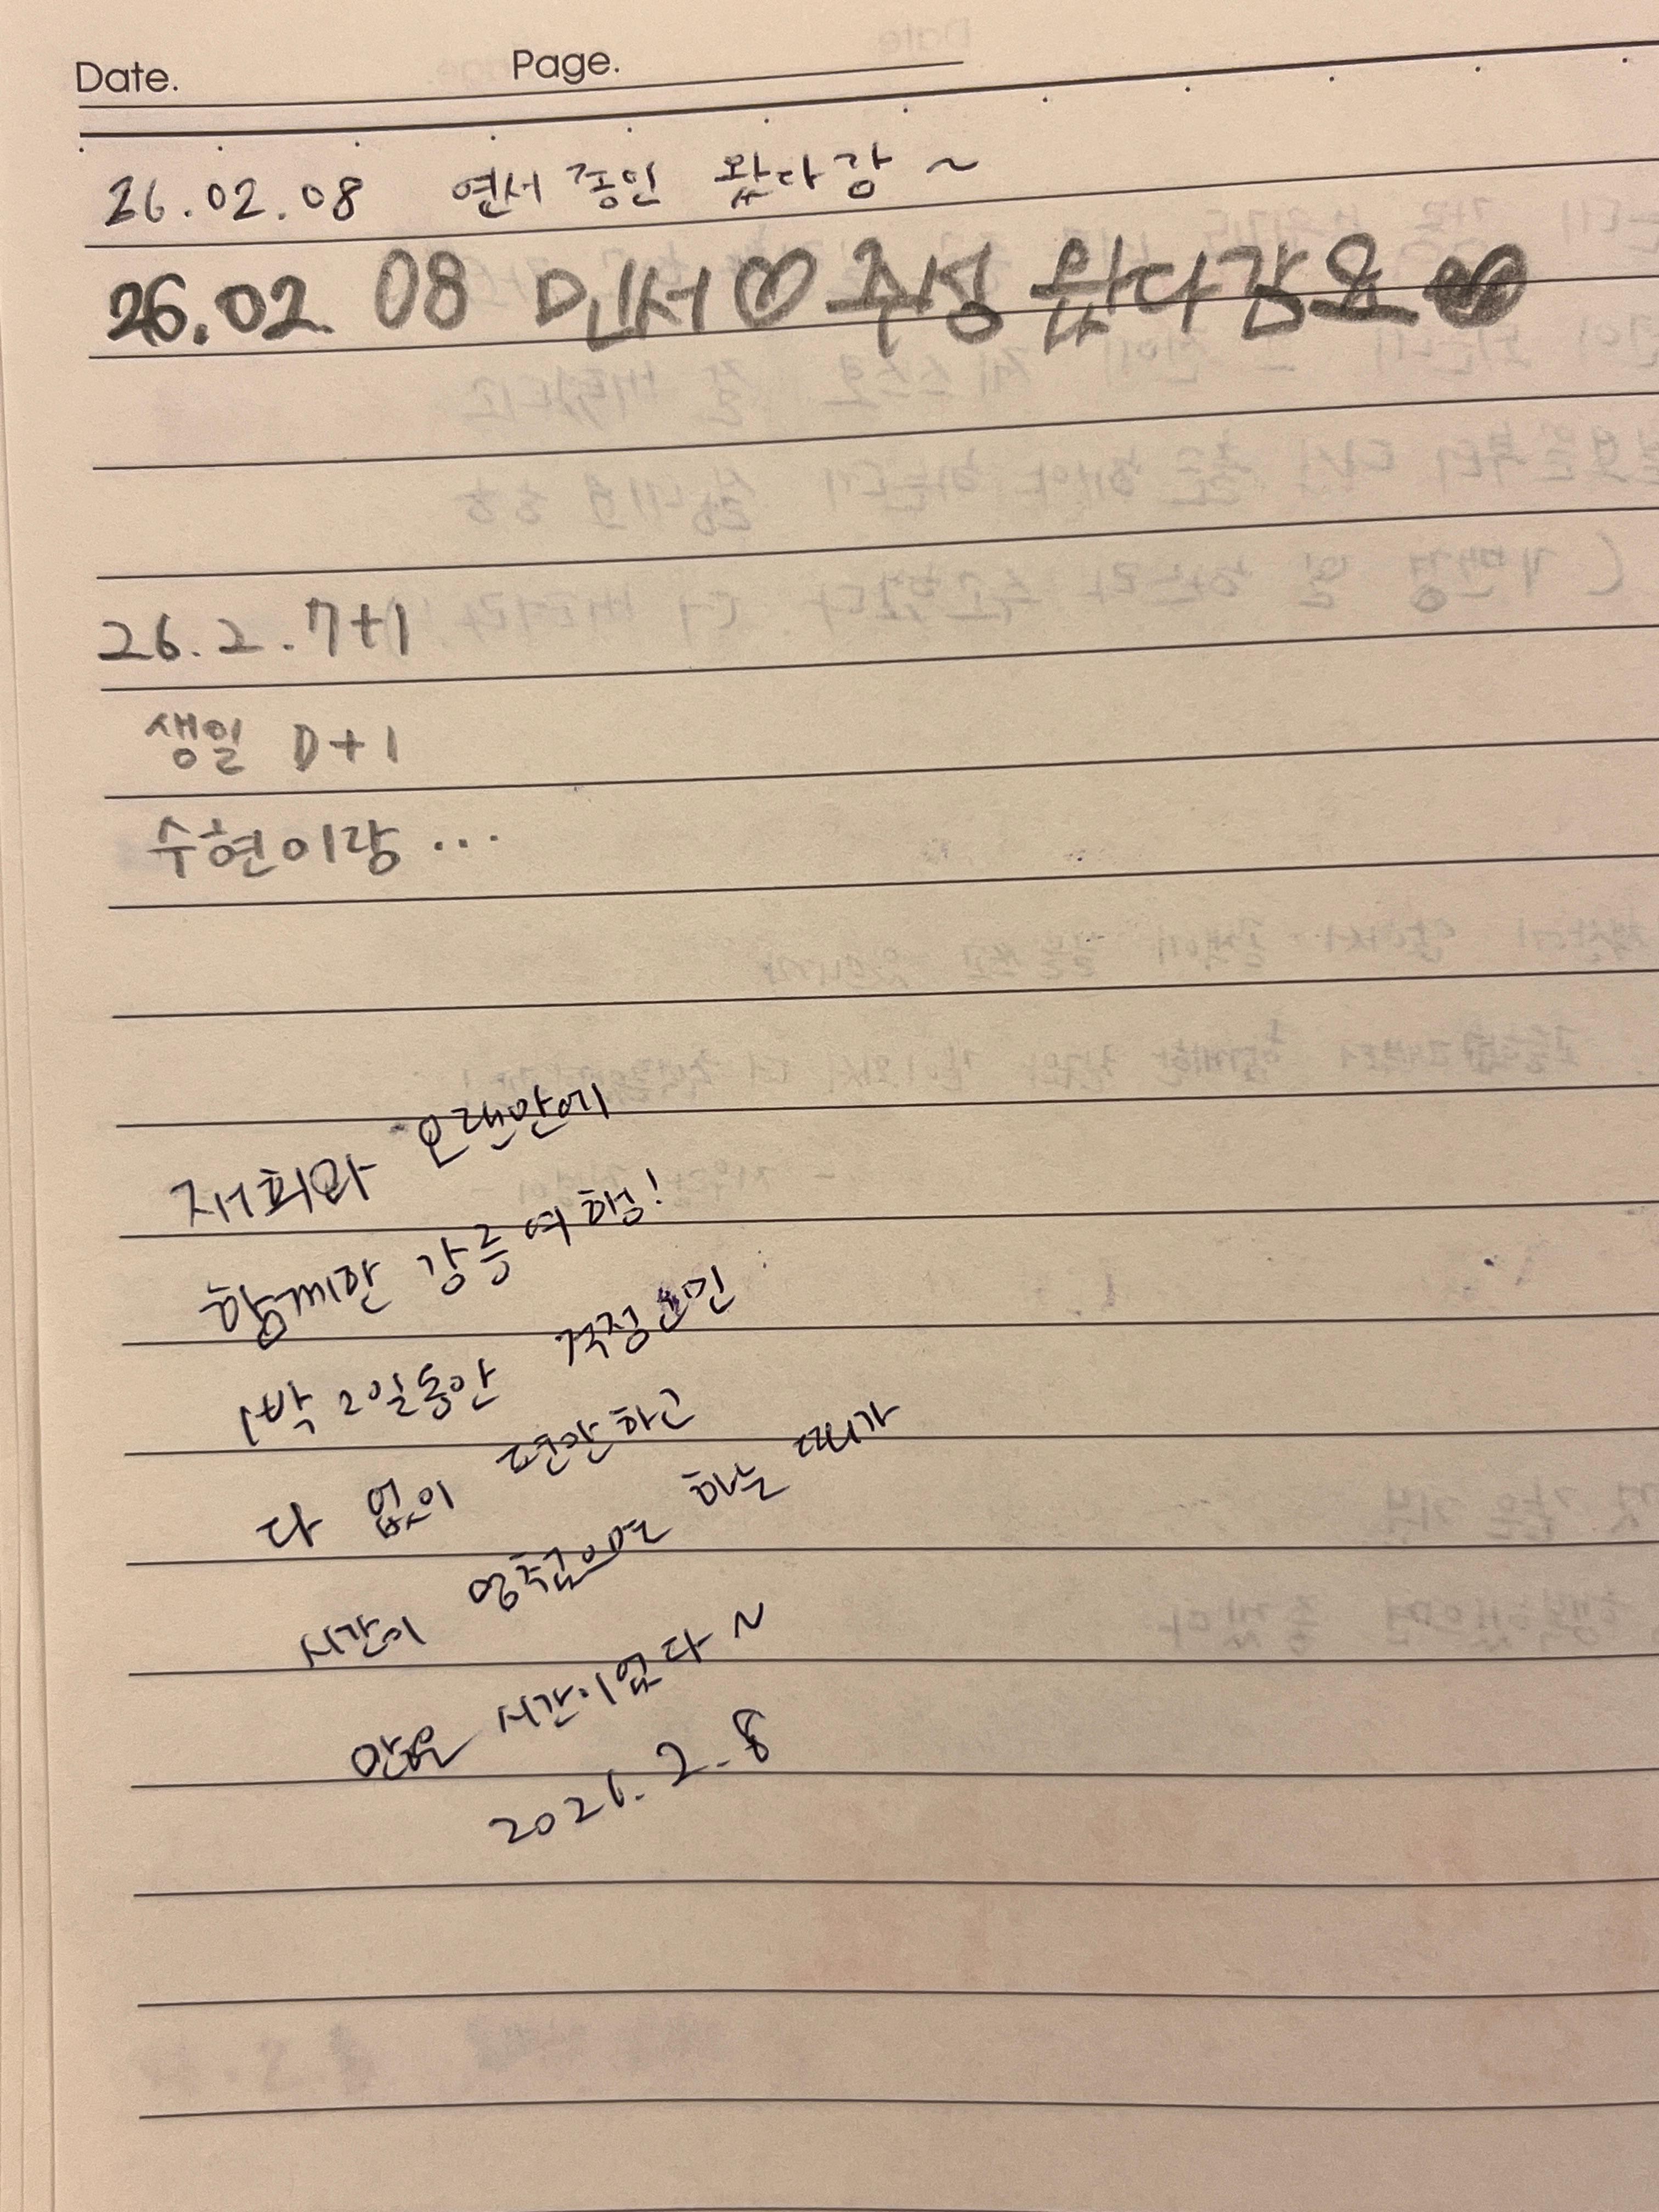 Date. Page.
26.02.08 연서 종인 왔다감 ~
26.02 08 민서♡주성 왔다감요
26.2.7+1
생일 D+1
수현이랑 ...
재희와 오랜만에
함께한 강릉여행!
1박 2일동안 걱정고민
다 없이 편안하고
시간이 멈췄으면 하는 때가
많은 시간이었다 ~
2026.2.8